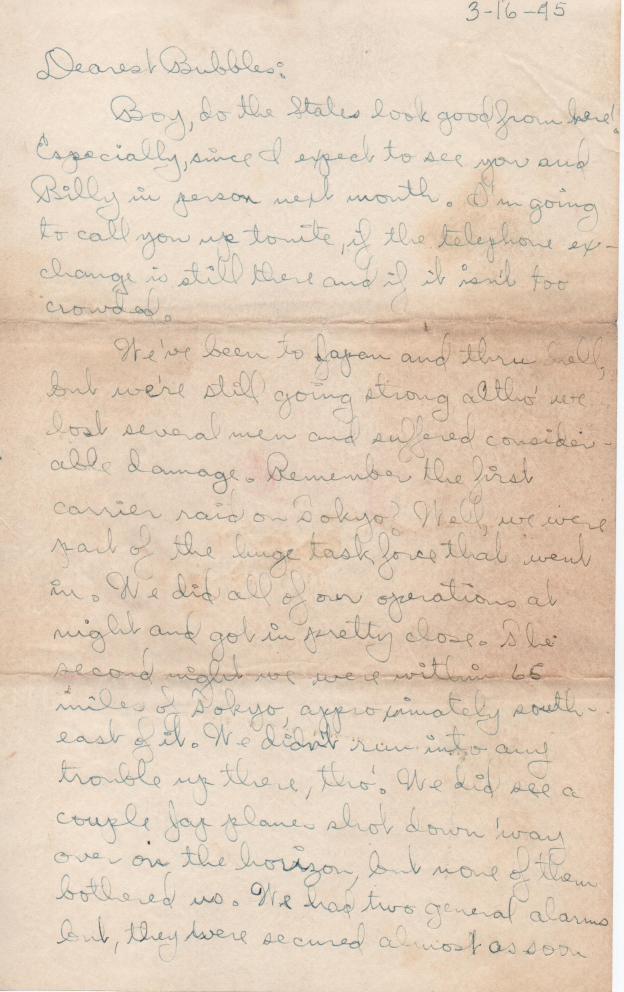 3-16-45
Dearest Bubbles:
Boy, do the States look good from here!
Especially, since I expect to see you and
Billy in person next month. I'm going
to call you up tonite, if the telephone ex-
change is still there and if it isn't too
crowded.
We've been to Japan and thru hell,
but we're still going strong altho' we
lost several men and suffered consider-
able damage. Remember the first
carrier raid on Tokyo? Well, we were
part of the huge task force that went
in. We did all of our operations at
night and got in pretty close. The
second night we were within 65
miles of Tokyo, approximately south-
east of it. We didn't run into any
trouble up there, tho'. We did see a
couple Jap planes shot down 'way
over on the horizon, but none of them
bothered us. We had two general alarms
but, they were secured almost as soon